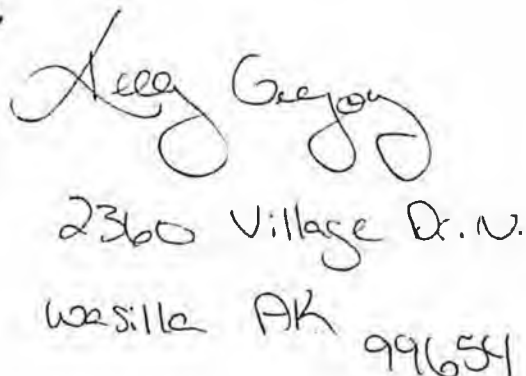 Gregory
2360 Village Dr. N.
Wasilla AK
99654